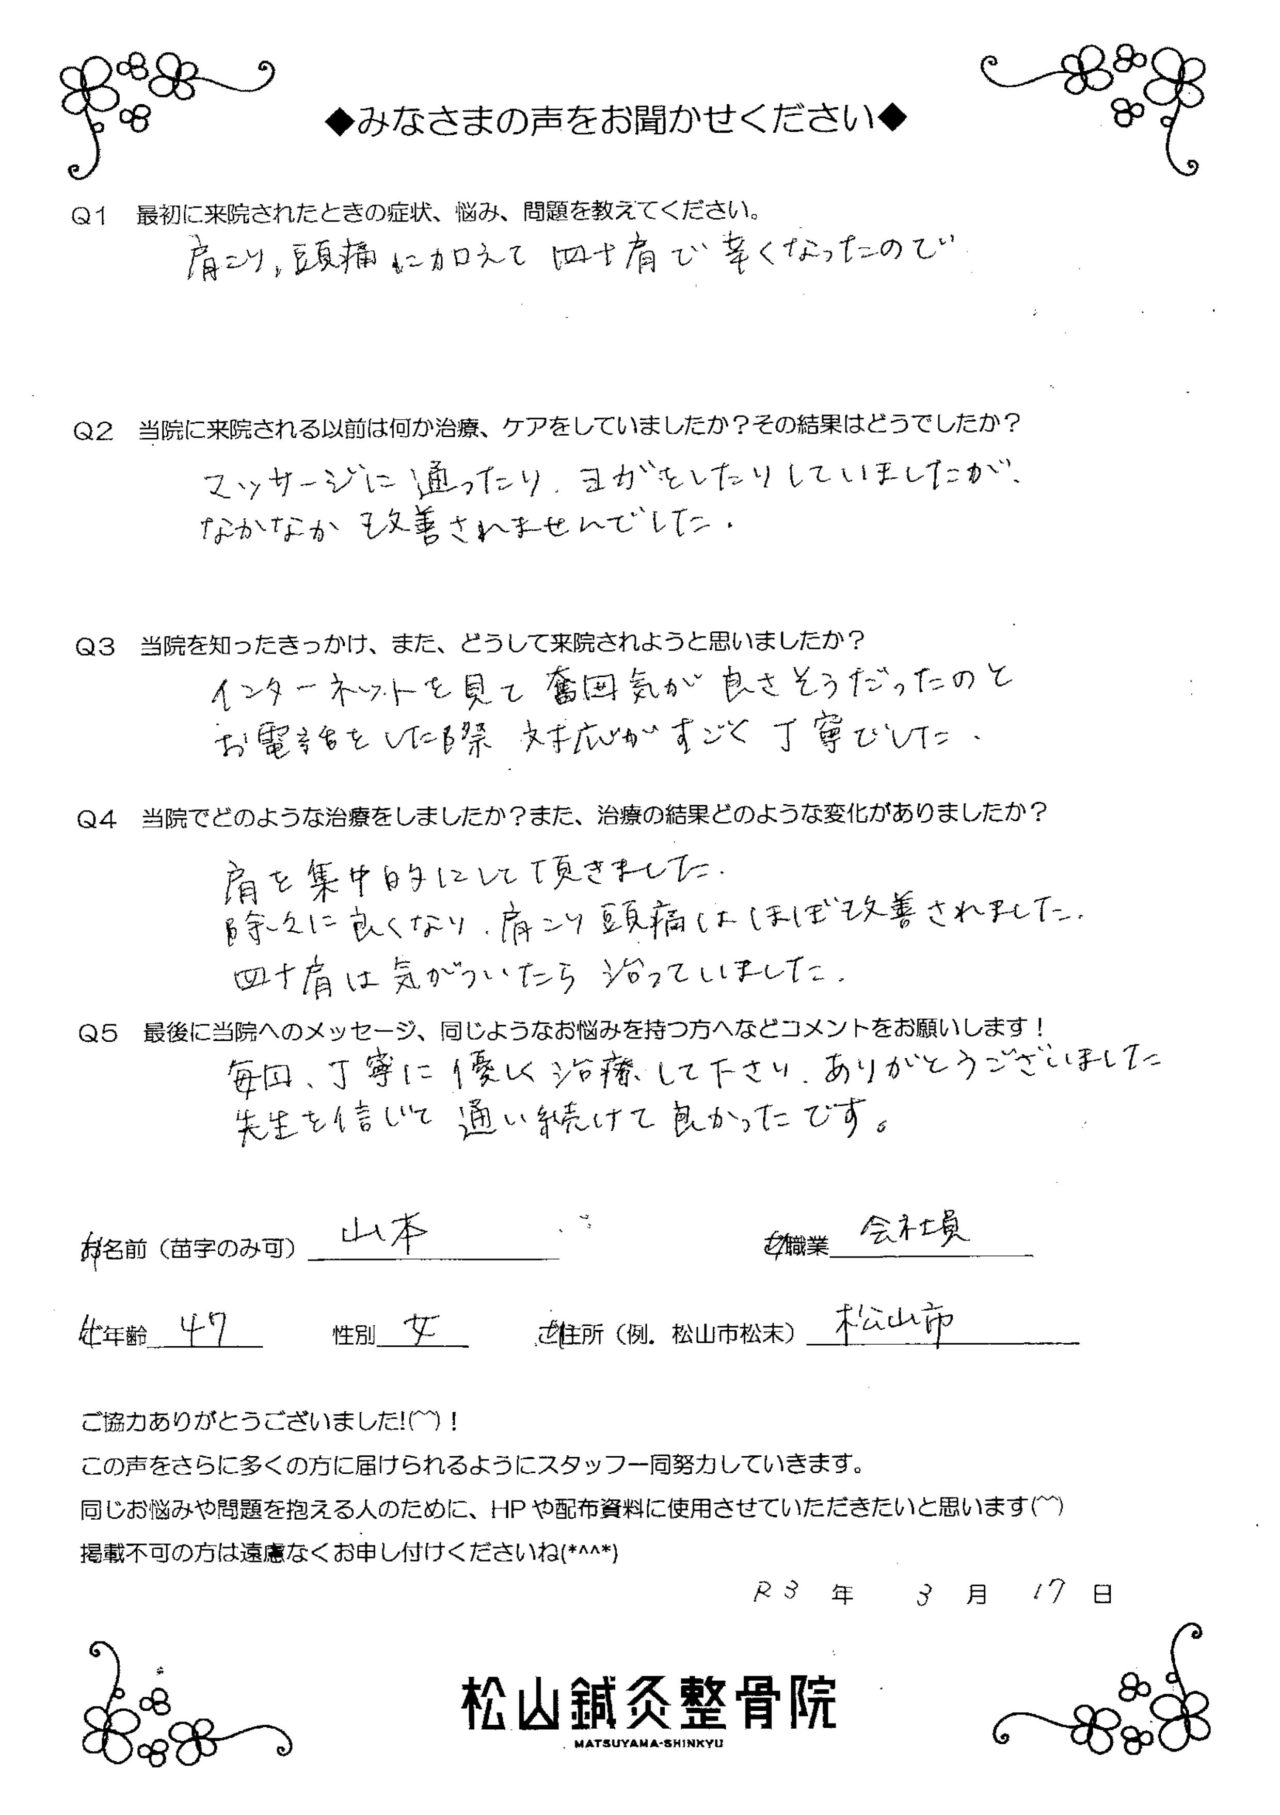 ◆みなさまの声をお聞かせください◆
Q1 最初に来院されたときの症状、悩み、問題を教えてください。
肩こり、頭痛に加えて 四十肩で 辛くなったので
Q2 当院に来院される以前は何か治療、ケアをしていましたか？その結果はどうでしたか？
マッサージに通ったり、ヨガをしたりしていましたが、
なかなか改善されませんでした.
Q3 当院を知ったきっかけ、また、どうして来院されようと思いましたか？
インターネットを見て 奮囲気が 良さそうだったのと
お電話をした際 対応がすごく丁寧でした.
Q4 当院でどのような治療をしましたか？また、治療の結果どのような変化がありましたか？
肩を集中的にして頂きました.
除々に良くなり、肩こり頭痛はほぼ改善されました.
四十肩は気がついたら 治っていました.
Q5 最後に当院へのメッセージ、同じようなお悩みを持つ方へなどコメントをお願いします！
毎回、丁寧に優しく治療して下さり、ありがとうございました
先生を信じて 通い続けて良かったです。
お名前（苗字のみ可） 山本 ご職業 会社員
ご年齢 47 性別 女 ご住所（例．松山市松末） 松山市
ご協力ありがとうございました!(^^)！
この声をさらに多くの方に届けられるようにスタッフ一同努力していきます。
同じお悩みや問題を抱える人のために、HPや配布資料に使用させていただきたいと思います(^^)
掲載不可の方は遠慮なくお申し付けくださいね(*^^*)
R3 年 3 月 17 日
松山鍼灸整骨院
MATSUYAMA-SHINKYU